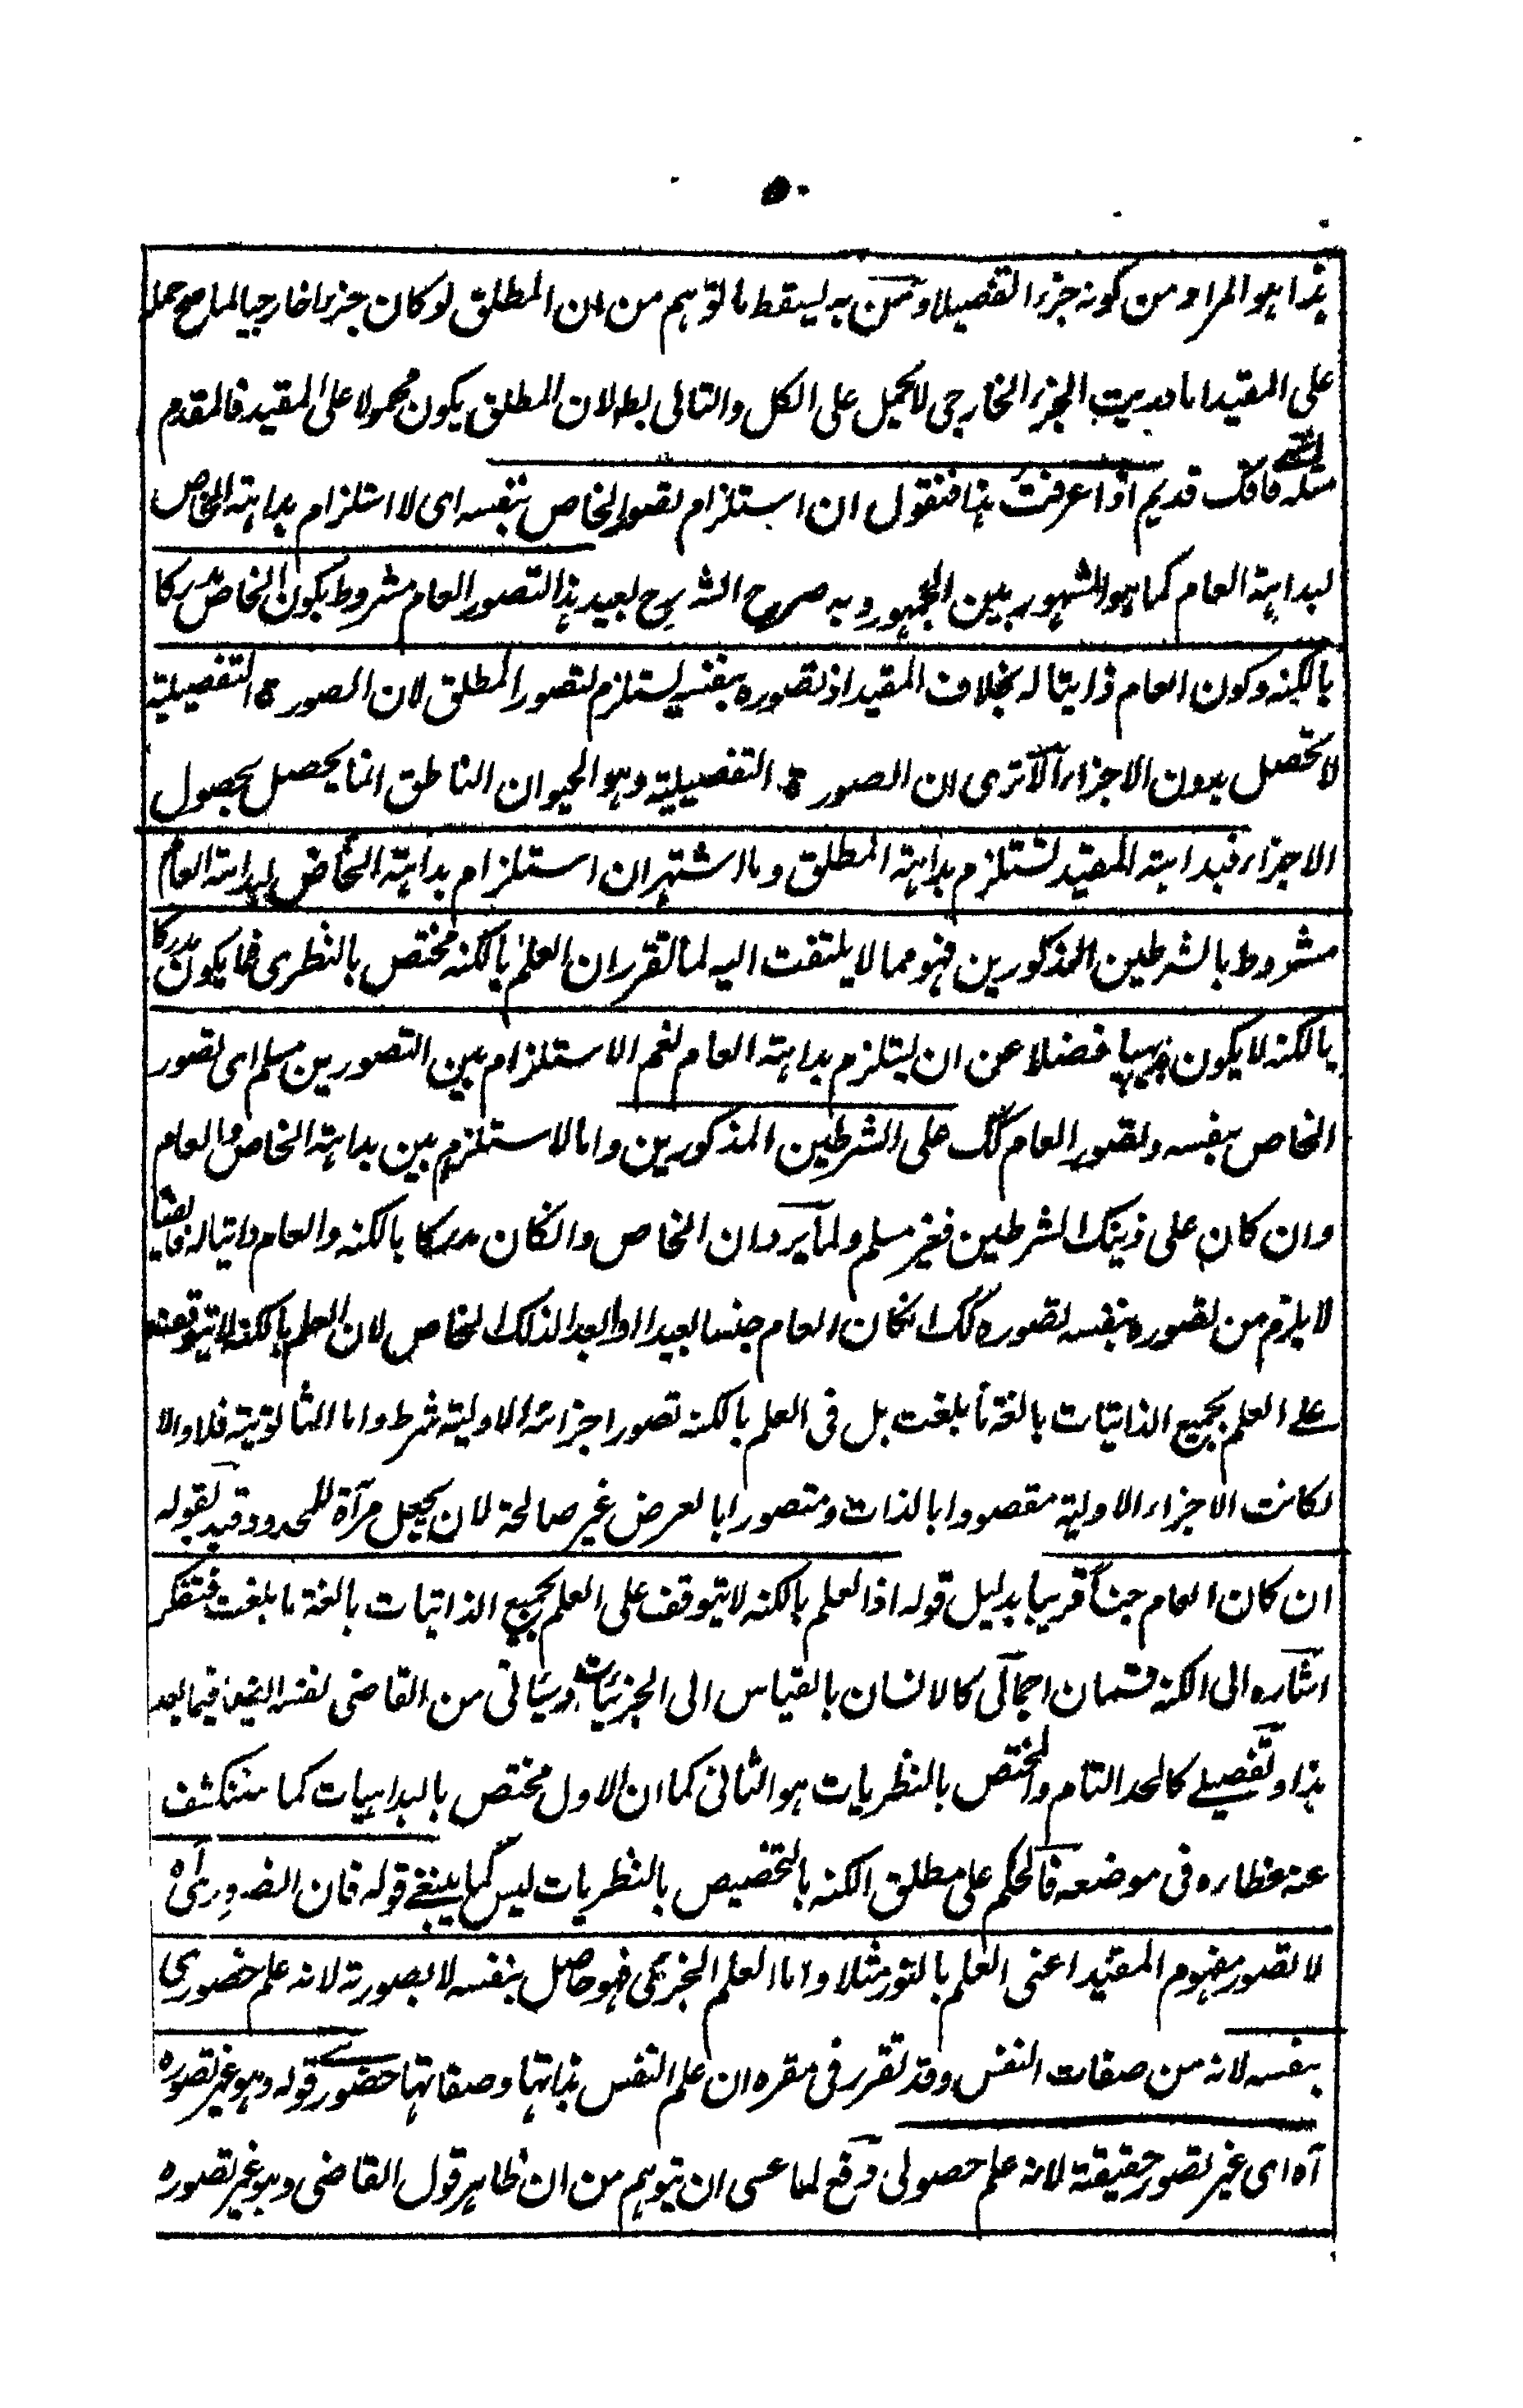 ٥٠
هذا هو المراد من كونه جزء التفصيلا ومن به ليسقط ما توهم من ان المطلق لو كان جزءا خارجيا لما صح حمله
على المقيد اما دريت الجزء الخارجى لا يحمل على الكل والتالى بط لان المطلق يكون محمولا على المقيد فالمقدم
مثله فافك قديم اذا عرفت هذا فنقول ان استلزام تصور الخاص بنفسه اى لا استلزام بداهة الخاص
انتهى
لبداهة العام كما هو المشهور بين الجمهور وبه صرح الشارح بعيد هذا التصور العام مشروط بكون الخاص مدركا
بالكنه وكون العام ذاتيا له بخلاف المقيد اذ تصوره بنفسه يستلزم لتصور المطلق لان الصورة التفصيلية
لا تحصل بدون الاجزاء الا ترى ان الصورة التفصيلية وهو الحيوان الناطق انما يحصل بحصول
الاجزاء فبداهة المقيد تستلزم بداهة المطلق وما اشتهر ان استلزام بداهة الخاض لبداهة العام
مشروط بالشرطين المذكورين فهو مما لا يلتفت اليه لما تقرر ان العلم بالكنه مختص بالنظرى فما يكون مدركا
بالكنه لا يكون بديهيا فضلا عن ان يستلزم بداهة العام نعم الاستلزام بين التصورين مسلم اى تصور
الخاص بنفسه وتصور العام كك على الشرطين المذكورين واما الاستلزم بين بداهة الخاص والعام
وان كان على ذينك الشرطين فغير مسلم ولما يرد ان الخاص وانكان مدركا بالكنه والعام ذاتيا له فايضا
لا يلزم من تصوره بنفسه تصوره كك انكان العام جنسا بعيدا او ابعد الذلك الخاص لان العلم بالكنه لا يتوقف
على العلم بجميع الذاتيات بالغة ما بلغت بل فى العلم بالكنه تصور اجزائه الاولية شرط واما الثالوثية فلا والا
لكانت الاجزاء الاولية مقصودا بالذات ومتصورا بالعرض غير صالحة لان يجعل مرآة للمحدود قيد بقوله
ان كان العام جنسا قريبا بدليل قوله اذ العلم بالكنه لا يتوقف على العلم بجميع الذاتيات بالغة ما بلغت فتفكر
اشاره الى الكنه قسمان اجمالى كالانسان بالقياس الى الجزئيات وسياتى من القاضى نفسه ايضا فيما بعد
هذا وتفصيلے كالحد التام والمختص بالنظريات هو الثانى كما ان الاول مختص بالبداهيات كما ستنكشف
عنه غطاره فى موضعه فالحكم على مطلق الكنه بالتخصيص بالنظريات ليس كما ينبغے قوله فان الضرورى اه
لا تصور مفهوم المقيد اعنى العلم بالنور مثلا واما العلم الجزئى فهو حاصل بنفسه لا بصورته لانه علم حضورى
بنفسه لانه من صفات النفس وقد تقرر فى مقره ان علم النفس بذاتها وصفاتها حضورے قوله وهو غير تصوره
آه اى غير تصور حقيقة لانه علم حصولى دفع لما عسى ان يتوهم من ان ظاهر قول القاضى وهو غير تصوره